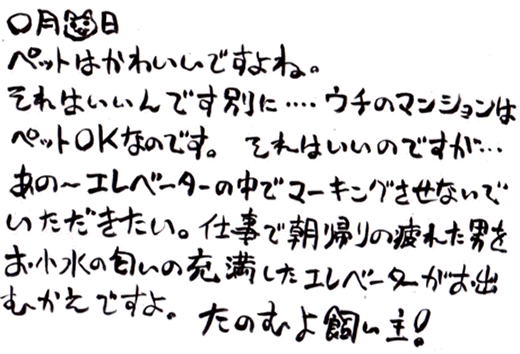 〇月🐱日
ペットはかわいいですよね。
それはいいんです別に‥‥ウチのマンションは
ペットOKなのです。それはいいのですが…
あの～エレベーターの中でマーキングさせないで
いただきたい。仕事で朝帰りの疲れた男を
お小水の匂いの充満したエレベーターがお出
むかえですよ。たのむよ飼い主!